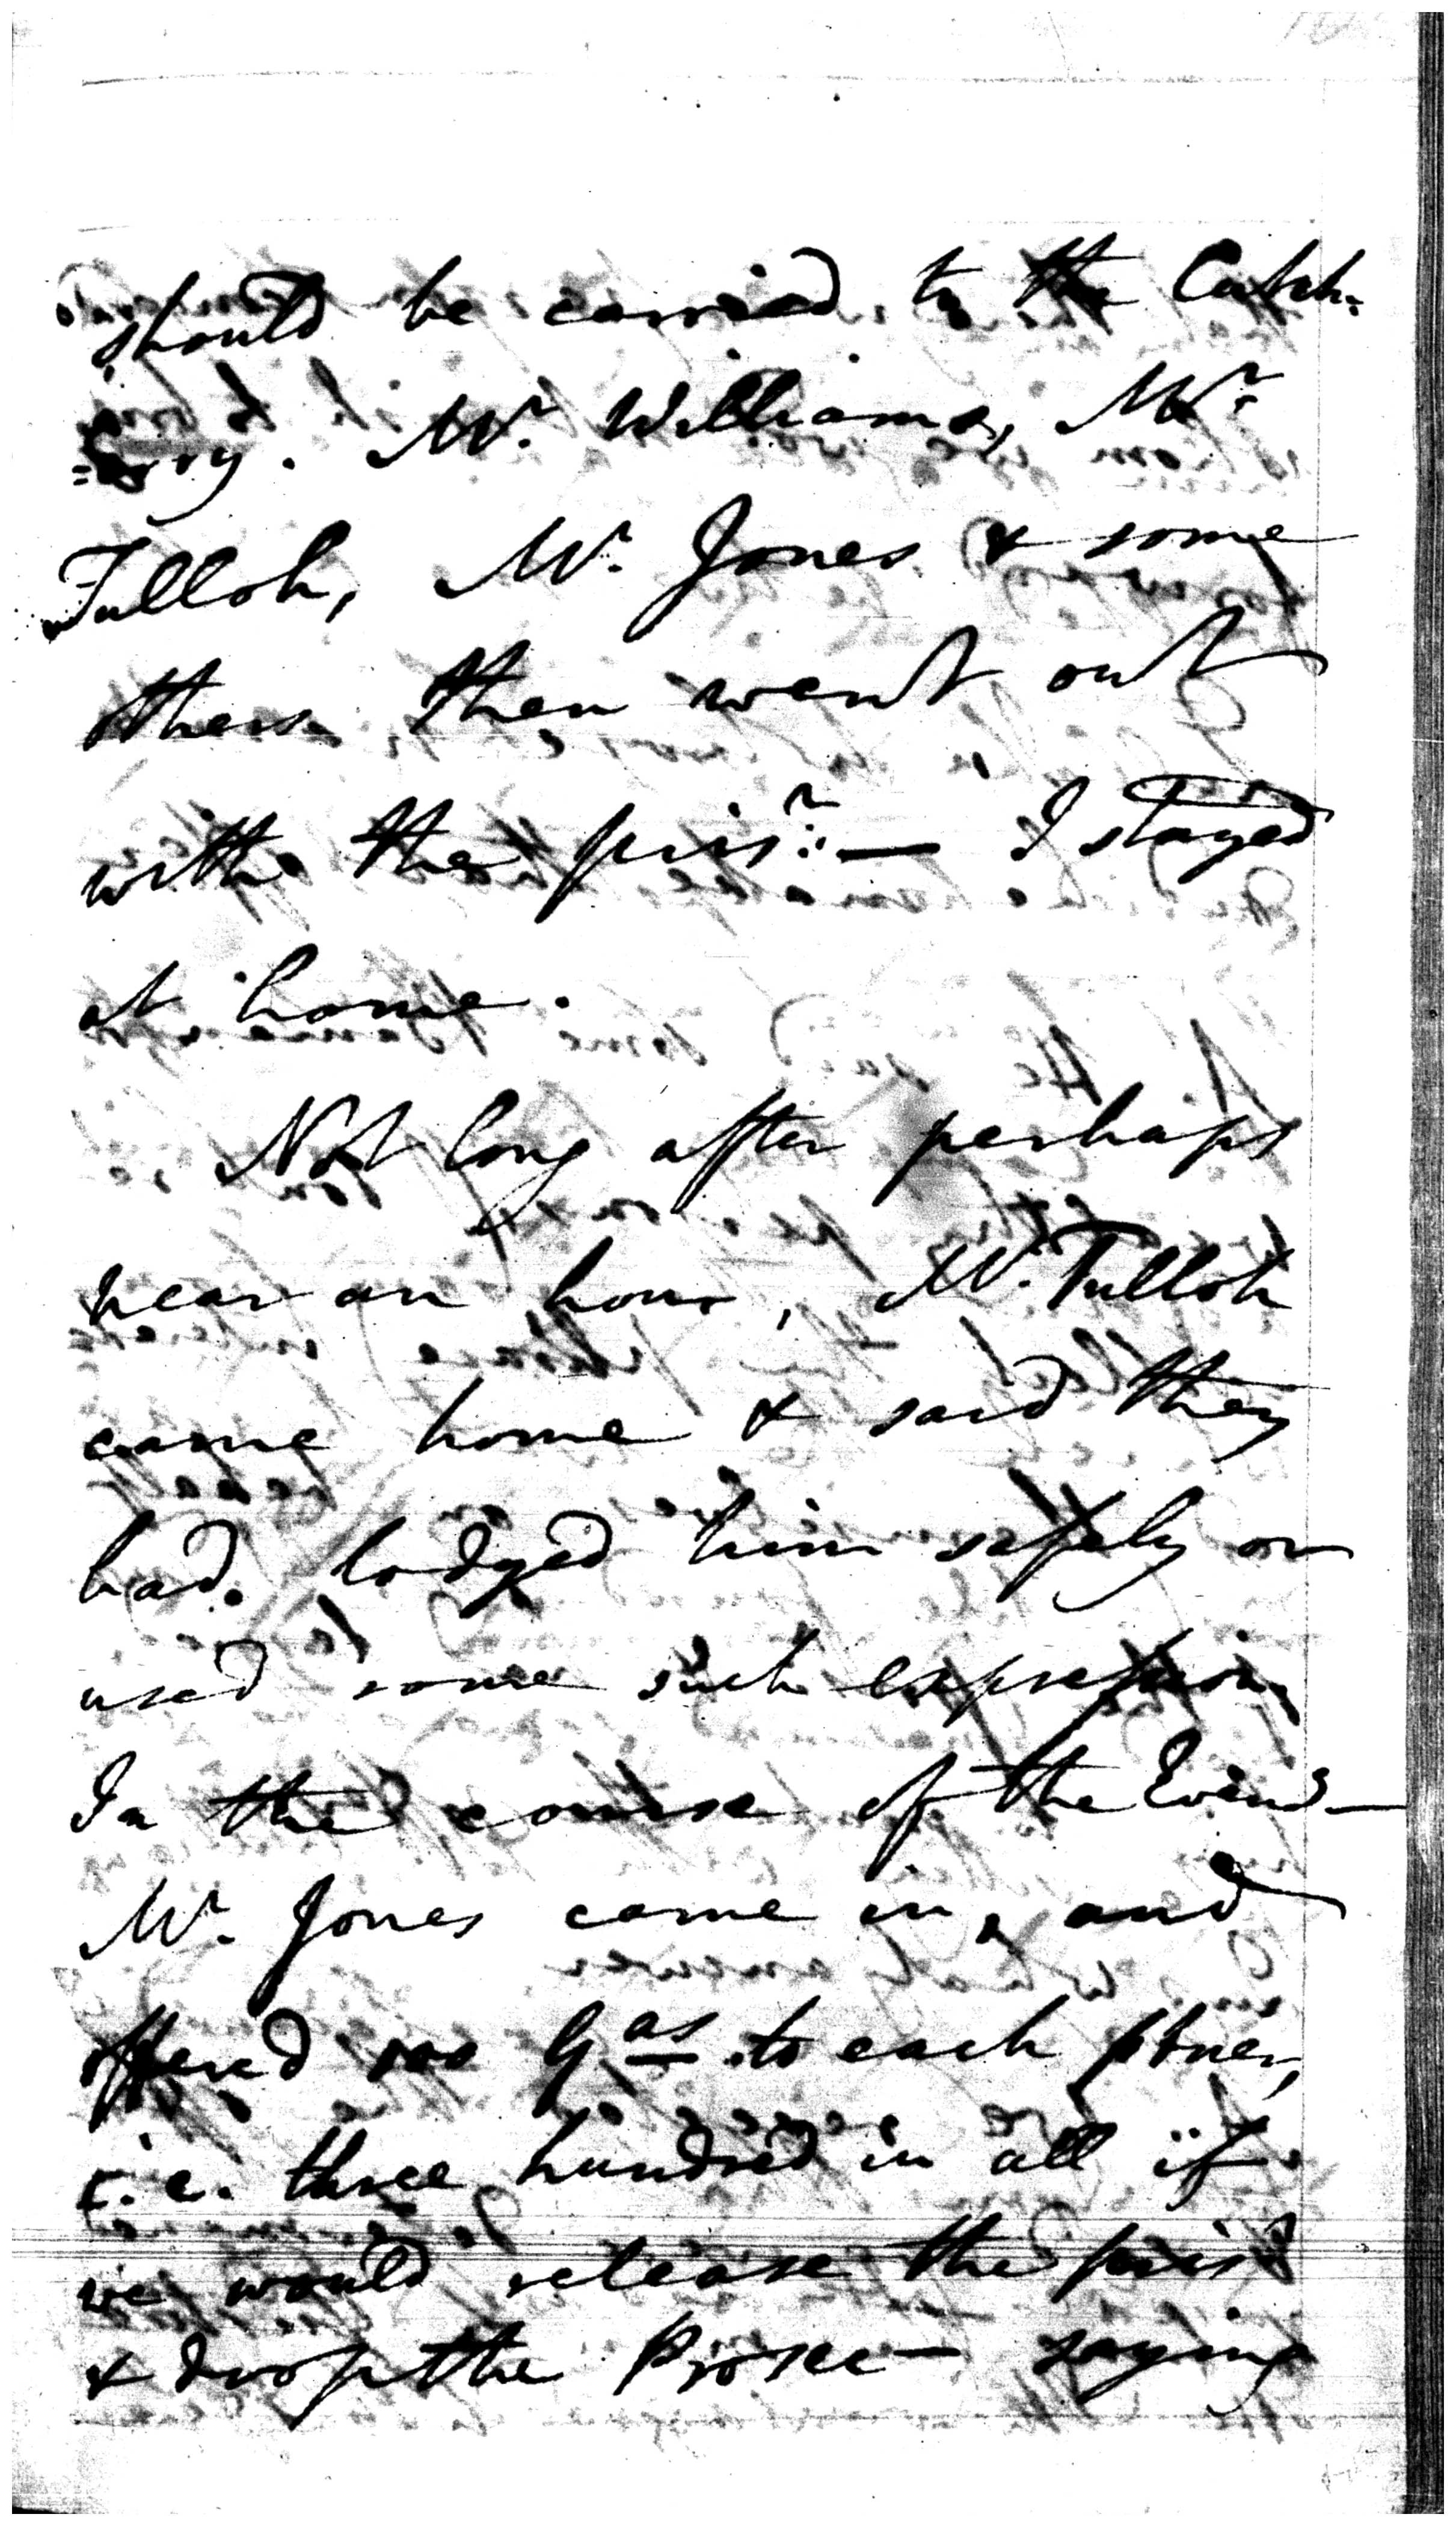 should be carried to the Cutch-
=erry. Mr. Williams, Mr.
Tulloh, Mr. Jones & some
others then went out
with the prisr. — I stayed
at home.
Not long after perhaps
near an hour, Mr. Tulloh
came home & said they
had lodged him safely or
used some such expression,
In the course of the Eveng—
Mr. Jones came in, and
offered 100 Gas to each ptner,
i.e. three hundred in all if
we would release the prisr
& drop the Prosec— saying